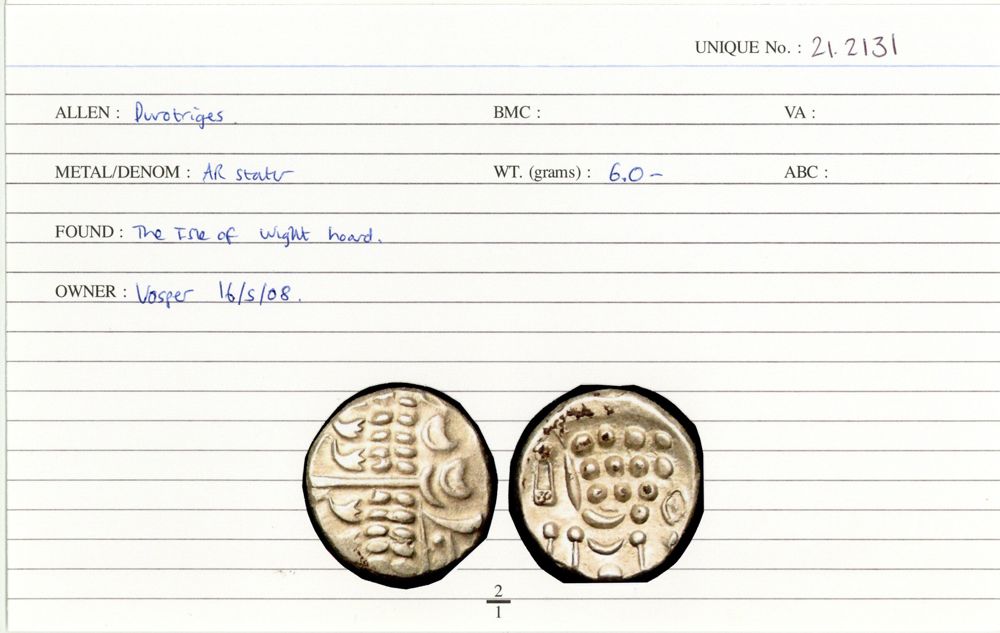 UNIQUE No. : 21.2131
ALLEN : Durotriges. BMC : VA :
METAL/DENOM : AR stater WT. (grams) : 6.0- ABC :
FOUND : The Isle of Wight hoard.
OWNER : Vosper 16/5/08.
2
1